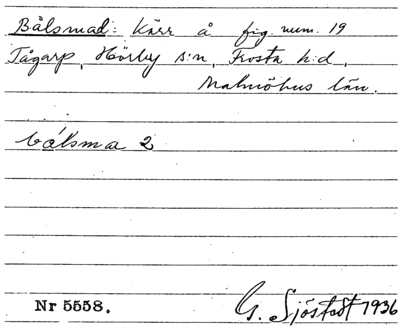 Bålsmad: Kärr å fig. num. 19
Tågarp, Hörby s:n, Frosta h:d,
Malmöhus län.
bålsma 2
Nr 5558.
G. Sjöstedt 1936